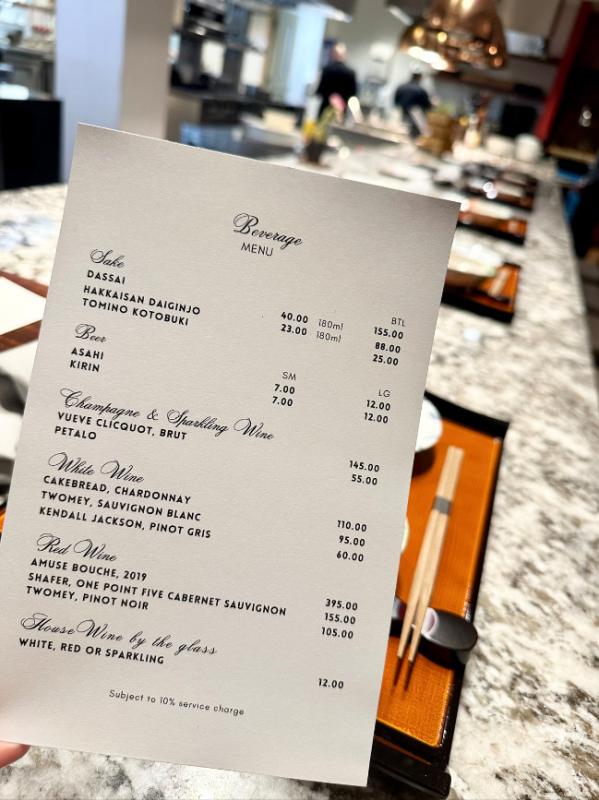 Beverage
MENU
Sake BTL
DASSAI 40.00 180ml 155.00
HAKKAISAN DAIGINJO 23.00 180ml 88.00
TOMINO KOTOBUKI 25.00
Beer SM LG
ASAHI 7.00 12.00
KIRIN 7.00 12.00
Champagne & Sparkling Wine
VUEVE CLICQUOT, BRUT 145.00
PETALO 55.00
White Wine
CAKEBREAD, CHARDONNAY 110.00
TWOMEY, SAUVIGNON BLANC 95.00
KENDALL JACKSON, PINOT GRIS 60.00
Red Wine
AMUSE BOUCHE, 2019 395.00
SHAFER, ONE POINT FIVE CABERNET SAUVIGNON 155.00
TWOMEY, PINOT NOIR 105.00
House Wine by the glass
WHITE, RED OR SPARKLING 12.00
Subject to 10% service charge